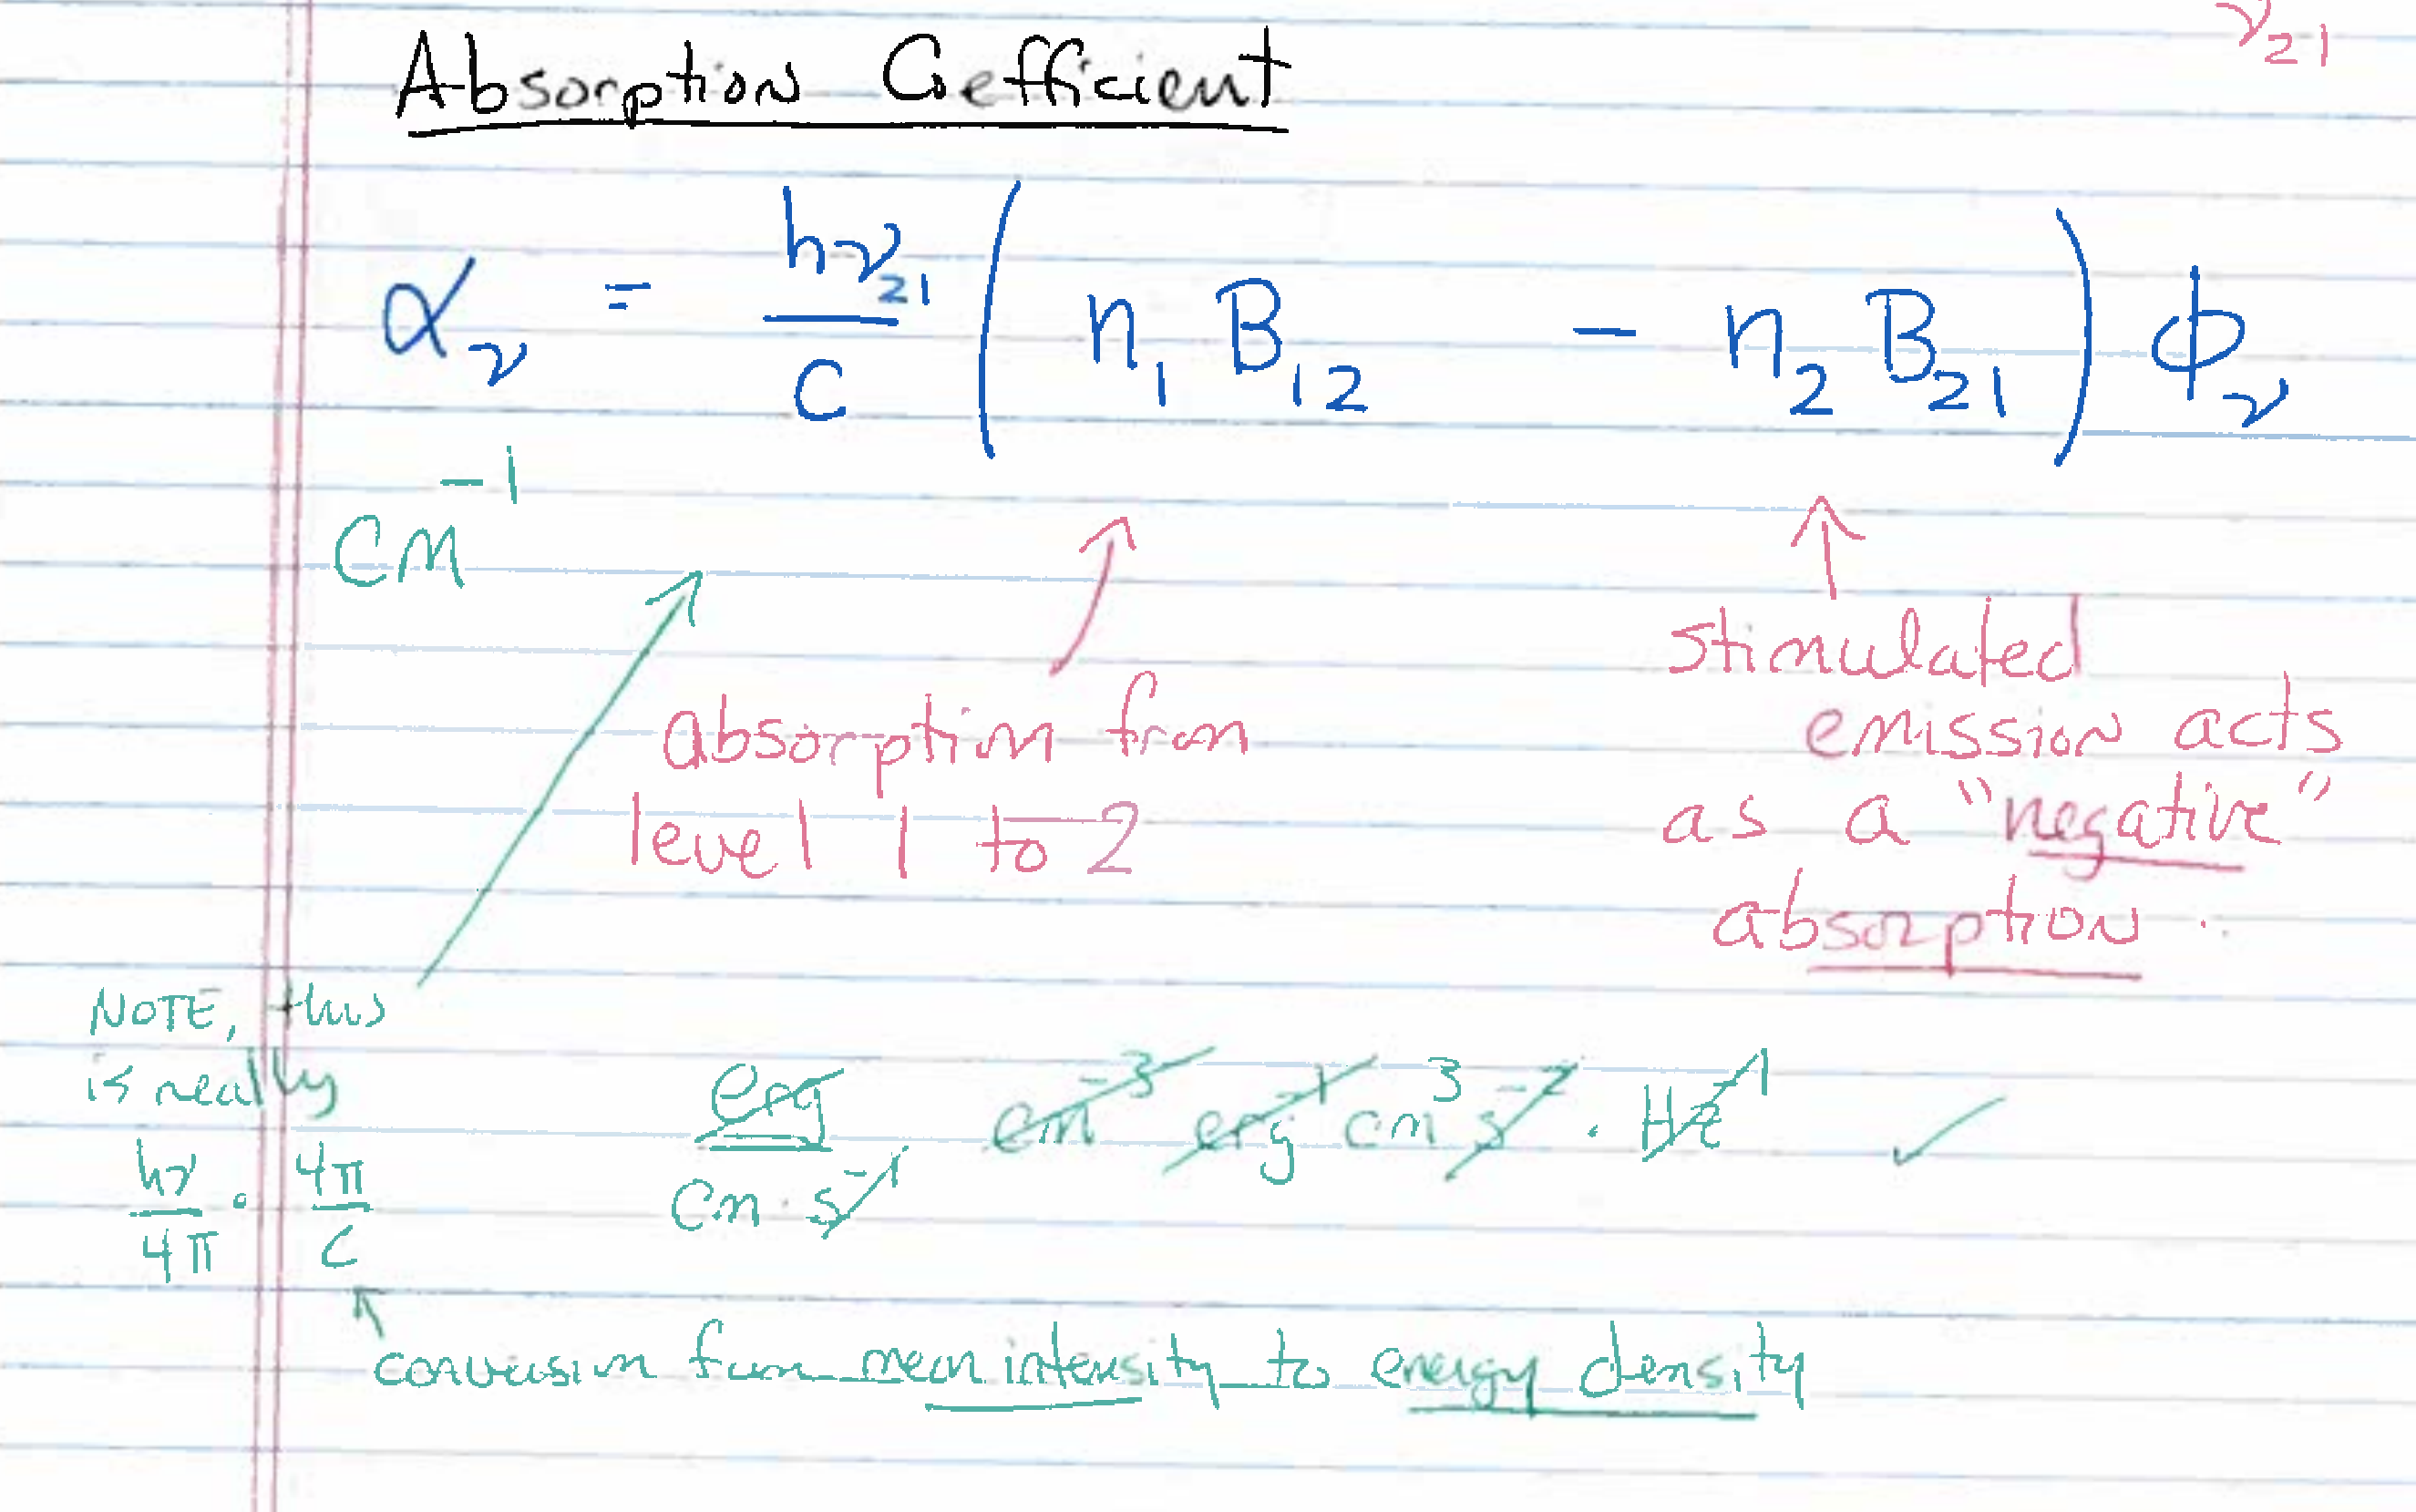 ν₂₁
Absorption Coefficient
α_ν = hν₂₁/c ( n₁ B₁₂ − n₂ B₂₁ ) ϕ_ν
cm⁻¹
absorption from
level 1 to 2
stimulated
emission acts
as a "negative"
absorption.
NOTE, this
is really
hν/4π · 4π/c
erg/cm·s⁻¹ cm⁻³ erg⁻¹ cm³ s⁻² · Hz⁻¹ ✓
conversion from mean intensity to energy density